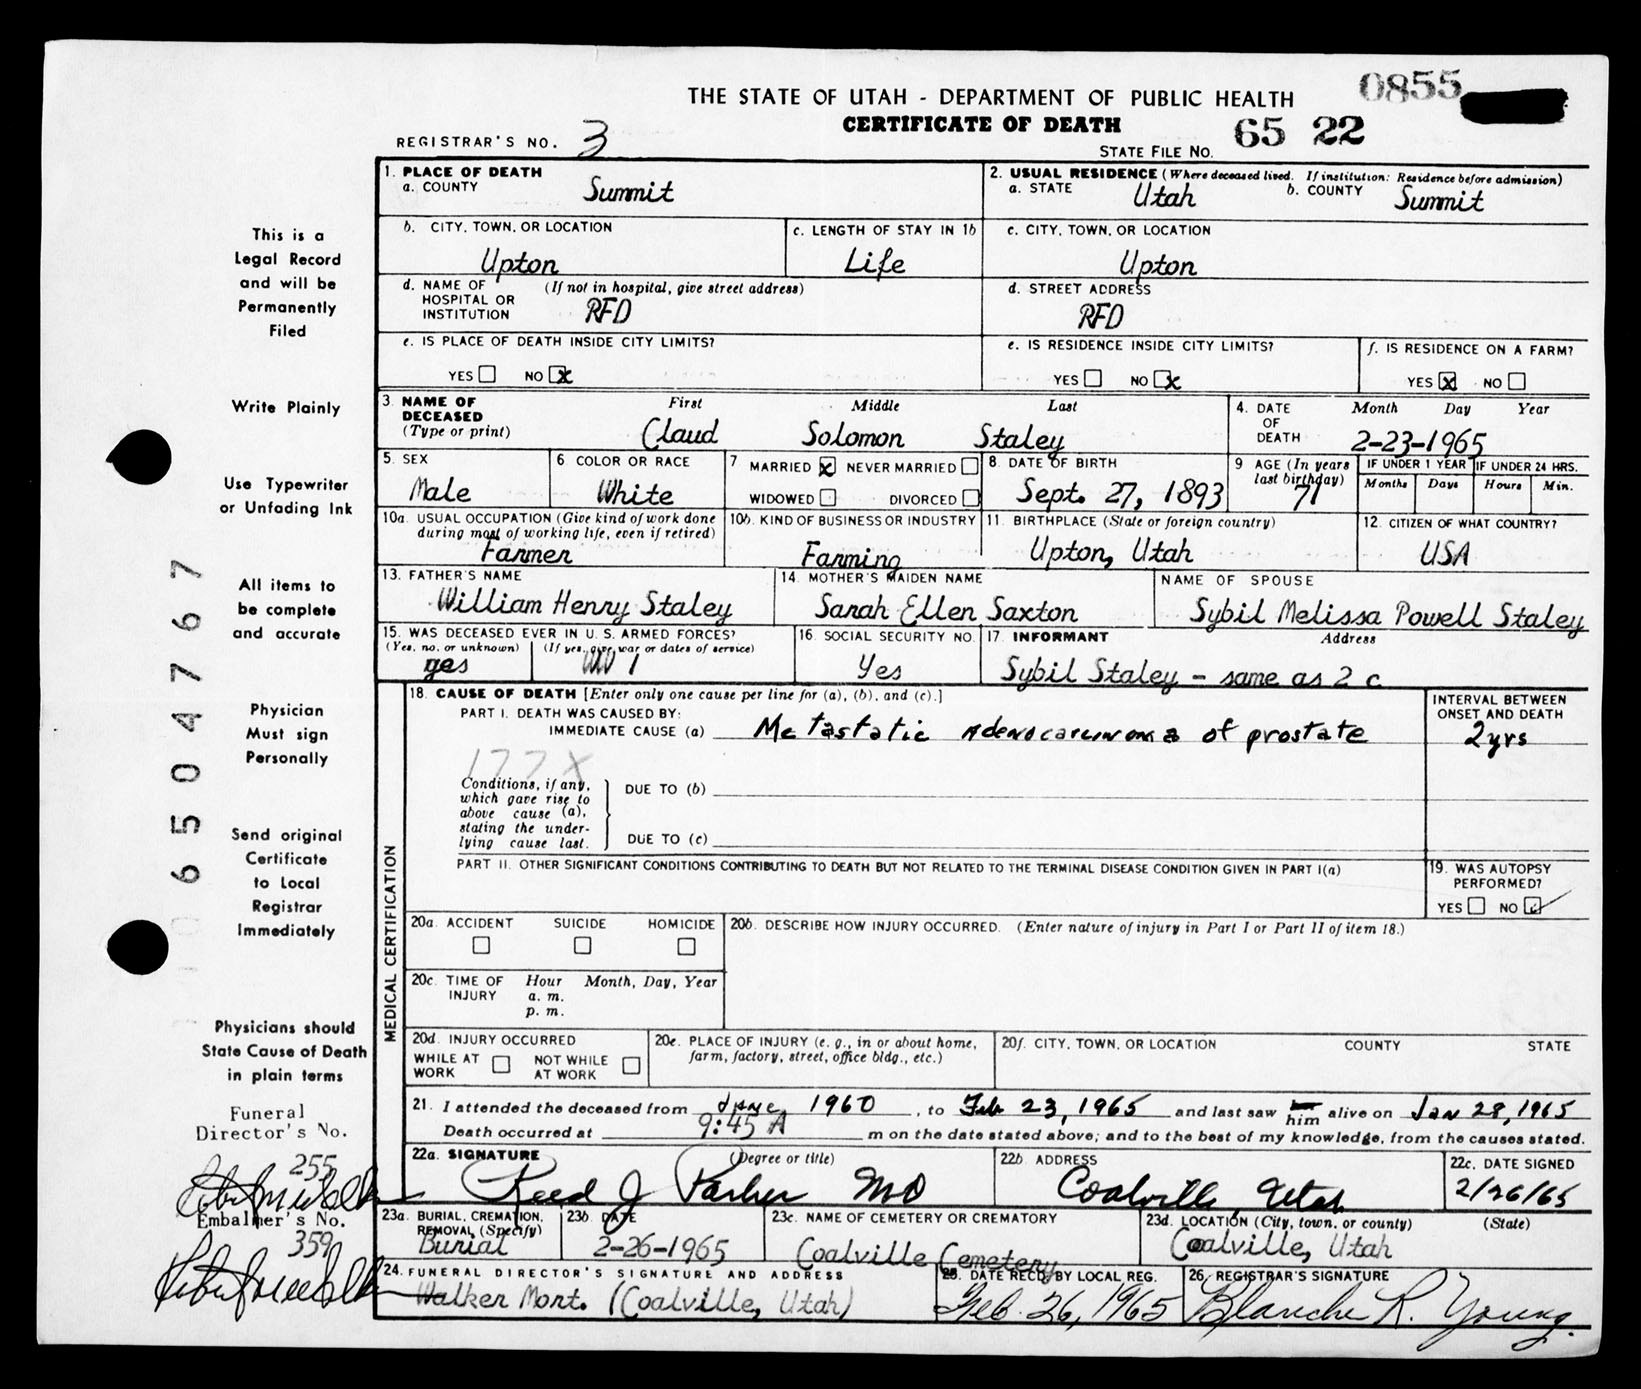 0855
THE STATE OF UTAH - DEPARTMENT OF PUBLIC HEALTH
CERTIFICATE OF DEATH
65 22
REGISTRAR'S NO. 3
STATE FILE NO.
This is a
Legal Record
and will be
Permanently
Filed
Write Plainly
Use Typewriter
or Unfading Ink
All items to
be complete
and accurate
Physician
Must sign
Personally
Send original
Certificate
to Local
Registrar
Immediately
Physicians should
State Cause of Death
in plain terms
Funeral
Director's No.
255
Embalmer's No.
359
6504767
1. PLACE OF DEATH
a. COUNTY Summit
2. USUAL RESIDENCE (Where deceased lived. If institution: Residence before admission)
a. STATE Utah b. COUNTY Summit
b. CITY, TOWN, OR LOCATION
Upton
c. LENGTH OF STAY IN 1b
Life
c. CITY, TOWN, OR LOCATION
Upton
d. NAME OF (If not in hospital, give street address)
HOSPITAL OR
INSTITUTION RFD
d. STREET ADDRESS
RFD
e. IS PLACE OF DEATH INSIDE CITY LIMITS?
YES NO x
e. IS RESIDENCE INSIDE CITY LIMITS?
YES NO x
f. IS RESIDENCE ON A FARM?
YES x NO
3. NAME OF DECEASED
(Type or print)
First Middle Last
Claud Solomon Staley
4. DATE OF DEATH
Month Day Year
2-23-1965
5. SEX
Male
6 COLOR OR RACE
White
7 MARRIED x NEVER MARRIED
WIDOWED DIVORCED
8. DATE OF BIRTH
Sept. 27, 1893
9 AGE (In years
last birthday)
71
IF UNDER 1 YEAR
Months Days
IF UNDER 24 HRS.
Hours Min.
10a. USUAL OCCUPATION (Give kind of work done
during most of working life, even if retired)
Farmer
10b. KIND OF BUSINESS OR INDUSTRY
Farming
11. BIRTHPLACE (State or foreign country)
Upton, Utah
12. CITIZEN OF WHAT COUNTRY?
USA
13. FATHER'S NAME
William Henry Staley
14. MOTHER'S MAIDEN NAME
Sarah Ellen Saxton
NAME OF SPOUSE
Sybil Melissa Powell Staley
15. WAS DECEASED EVER IN U. S. ARMED FORCES?
(Yes, no. or unknown) (If yes, give war or dates of service)
yes WW 1
16. SOCIAL SECURITY NO.
Yes
17. INFORMANT Address
Sybil Staley - same as 2 c
MEDICAL CERTIFICATION
18. CAUSE OF DEATH [Enter only one cause per line for (a), (b), and (c).]
PART I. DEATH WAS CAUSED BY:
IMMEDIATE CAUSE (a) Metastatic Adenocarcinoma of prostate
INTERVAL BETWEEN
ONSET AND DEATH
2yrs
177X
Conditions, if any,
which gave rise to
above cause (a),
stating the under-
lying cause last.
DUE TO (b)
DUE TO (c)
PART II. OTHER SIGNIFICANT CONDITIONS CONTRIBUTING TO DEATH BUT NOT RELATED TO THE TERMINAL DISEASE CONDITION GIVEN IN PART I(a)
19. WAS AUTOPSY
PERFORMED?
YES NO ✓
20a. ACCIDENT SUICIDE HOMICIDE
20b. DESCRIBE HOW INJURY OCCURRED. (Enter nature of injury in Part I or Part II of item 18.)
20c. TIME OF INJURY
Hour Month, Day, Year
a. m.
p. m.
20d. INJURY OCCURRED
WHILE AT WORK NOT WHILE AT WORK
20e. PLACE OF INJURY (e. g., in or about home,
farm, factory, street, office bldg., etc.)
20f. CITY, TOWN, OR LOCATION COUNTY STATE
21. I attended the deceased from June, 1960, to Feb 23, 1965 and last saw him alive on Jan 28, 1965
Death occurred at 9:45 A m on the date stated above; and to the best of my knowledge, from the causes stated.
22a. SIGNATURE (Degree or title)
Reed J Parker MD
22b. ADDRESS
Coalville, Utah
22c. DATE SIGNED
2/26/65
23a. BURIAL, CREMATION,
REMOVAL (Specify)
Burial
23b. DATE
2-26-1965
23c. NAME OF CEMETERY OR CREMATORY
Coalville Cemetery
23d. LOCATION (City, town, or county) (State)
Coalville, Utah
24. FUNERAL DIRECTOR'S SIGNATURE AND ADDRESS
Walker Mort. (Coalville, Utah)
25. DATE RECD. BY LOCAL REG.
Feb. 26, 1965
26. REGISTRAR'S SIGNATURE
Blanche R. Young.